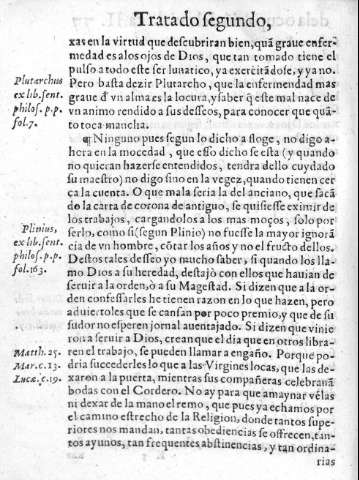 Tratado segundo,
xas en la virtud que descubriran bien, quã graue enfer-
medad es a los ojos de Dios, que tan tomado tiene el
pulso a todo este ser lunatico, ya exercitãdose, y ya no.
Plutarchus
ex lib. sent.
philos. p. p.
fol. 7.
Pero basta dezir Plutarcho, que la enfermendad mas
graue d̃ vn alma es la locura, y saber q̃ este mal nace de
vn animo rendido a sus desseos, para conocer que quã-
to toca mancha.
¶ Ninguno pues segun lo dicho afloge, no digo a-
hera en la mocedad, que esso dicho se esta (y quando
no quieran hazerse entendidos, tendra dello cuydado
su maestro) no digo sino en la vegez, quando tienen cer
ca la cuenta. O que mala seria la del anciano, que sacã
do la carta de corona de antiguo, se quisiesse eximir de
los trabajos, cargandolos a los mas moços, solo por
Plinius,
ex lib. sent.
philos. p. p.
fol. 163.
serlo, como si (segun Plinio) no fuesse la mayor ignorã
cia de vn hombre, cõtar los años y no el fructo dellos.
Destos tales desseo yo mucho saber, si quando los lla-
mo Dios a su heredad, destajò con ellos que hauian de
seruir a la orden, ò a su Magestad. Si dizen que a la or-
den confessarles he tienen razon en lo que hazen, pero
aduiertoles que se cansan por poco premio, y que de su
sudor no esperen jornal auentajado. Si dizen que vinie
ron a seruir a Dios, crean que el dia que en otros libra-
Matth. 25.
Mar. c. 13.
Lucæ. c. 19.
ren el trabajo, se pueden llamar a engaño. Porque po-
dria succederles lo que a las Virgines locas, que las de-
xaron a la puerta, mientras sus compañeras celebraua̅
bodas con el Cordero. No ay para que amaynar velas
ni dexar de la mano el remo, que pues ya echamos por
el camino estrecho de la Religion, donde tantos supe-
riores nos mandan, tantas obediencias se offrecen, tan-
tos ayunos, tan frequentes abstinencias, y tan ordina-
rias